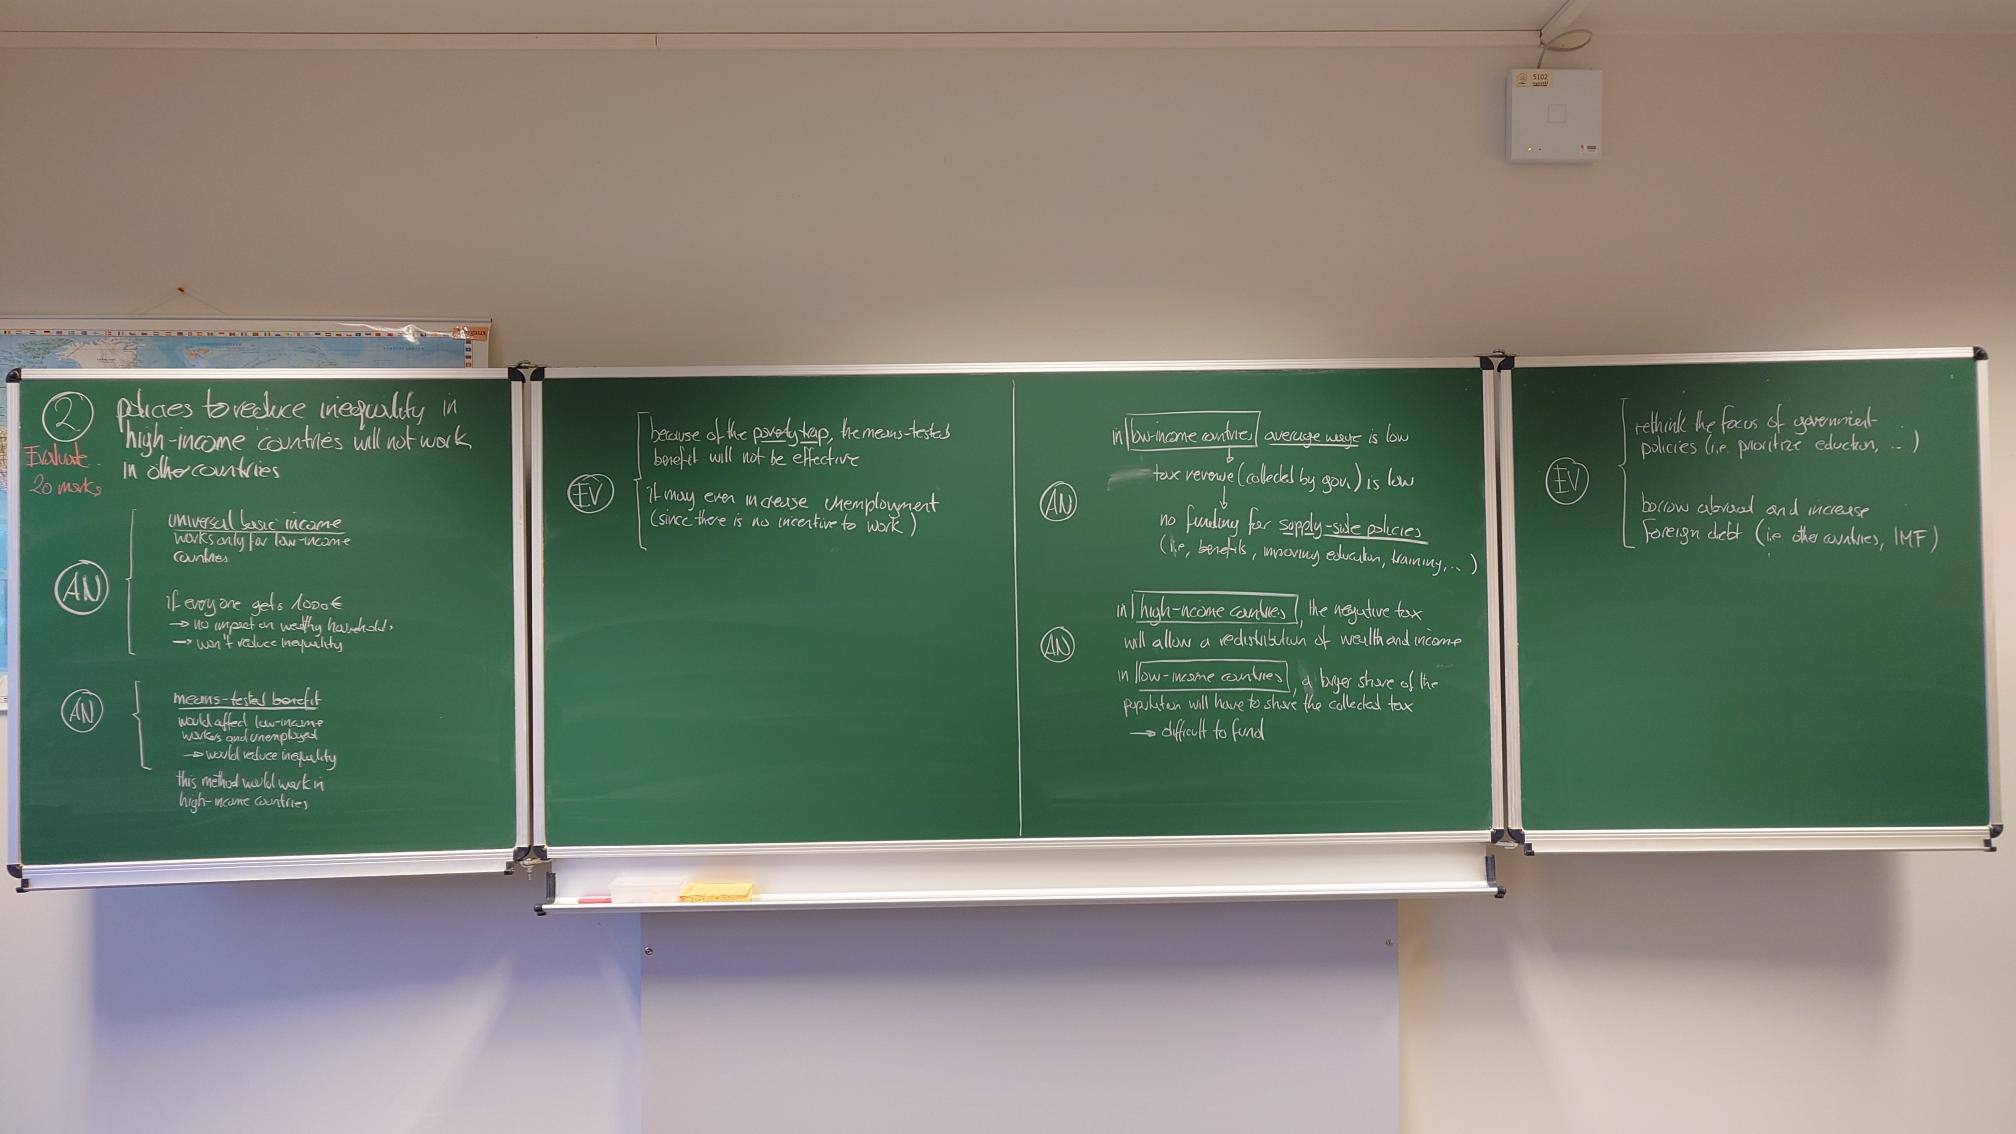 2
policies to reduce inequality in
high-income countries will not work
in other countries
Evaluate
20 marks
AN
universal basic income
works only for low-income
countries
if everyone gets 1000€
→ no impact on wealthy households
→ won't reduce inequality
AN
means-tested benefit
would affect low-income
workers and unemployed
→ would reduce inequality
this method would work in
high-income countries
EV
because of the poverty trap, the means-tested
benefit will not be effective
it may even increase unemployment
(since there is no incentive to work)
AN
in low-income countries average wage is low
↓
tax revenue (collected by gov.) is low
↓
no funding for supply-side policies
(i.e, benefits, improving education, training,...)
AN
in high-income countries, the negative tax
will allow a redistribution of wealth and income
in low-income countries, a larger share of the
population will have to share the collected tax
→ difficult to fund
EV
rethink the focus of government
policies (i.e. prioritize eduction, ...)
borrow abroad and increase
foreign debt (i.e. other countries, IMF)
5102